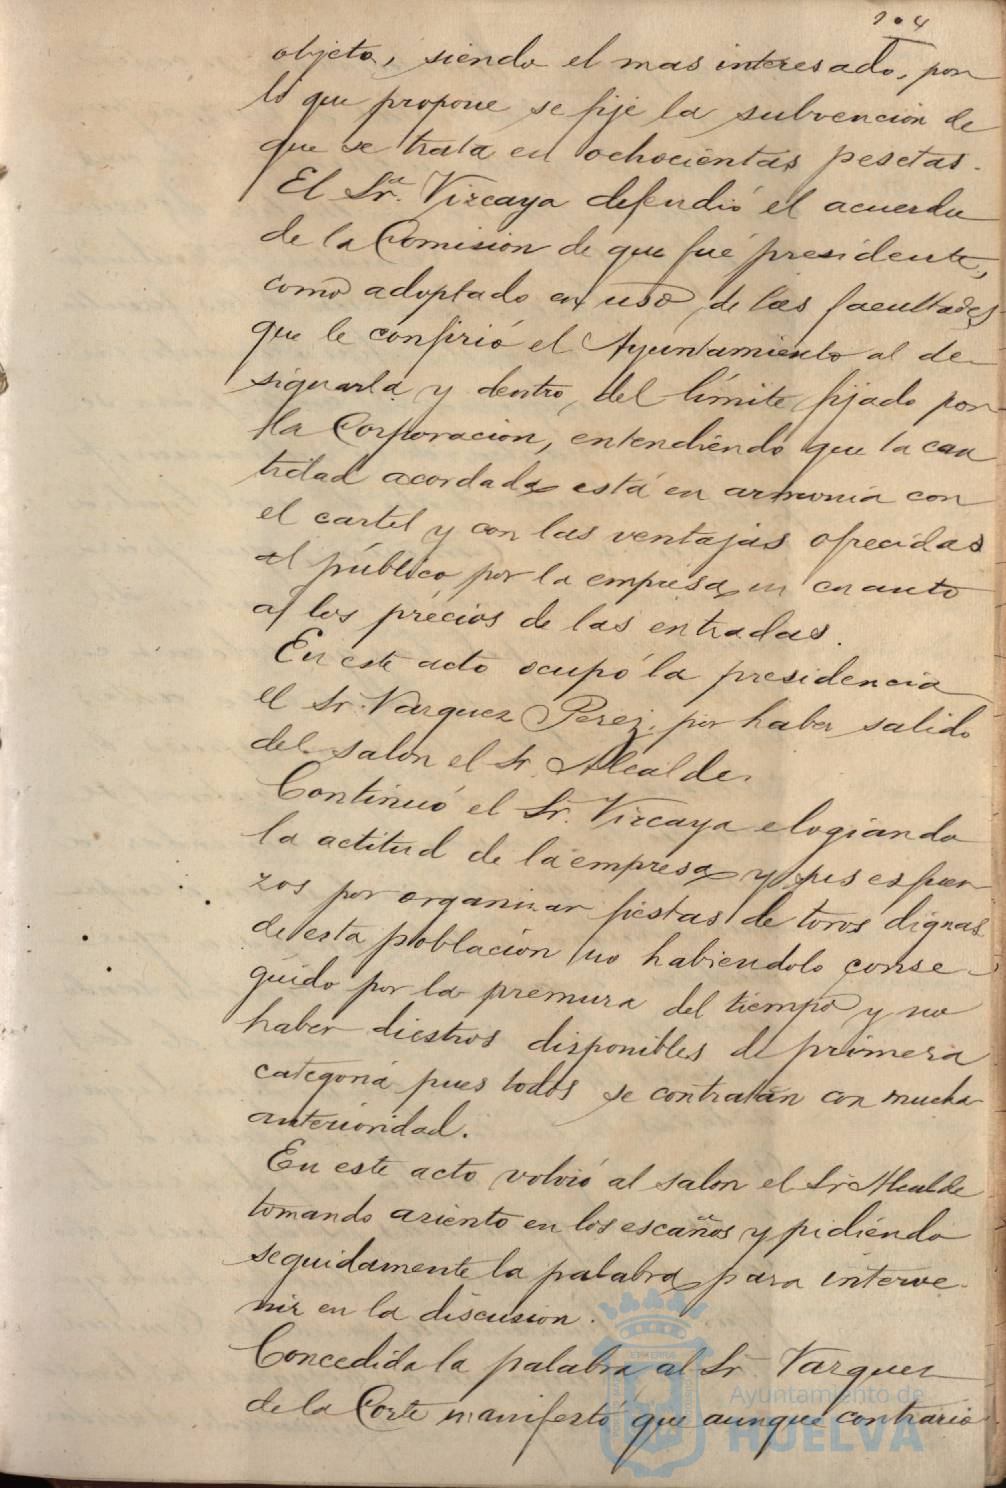 204
objeto, siendo el mas interesado, por
lo que propone se fije la subvención de
que se trata en ochocientas pesetas.
El Sr. Vizcaya defendió el acuerdo
de la Comisión de que fué presidente,
como adoptado en uso de las facultades
que le confirió el Ayuntamiento al de-
signarla y dentro del límite fijado por
la Corporación, entendiendo que la can
tidad acordada está en armonía con
el cartel y con las ventajas ofrecidas
al público por la empresa en cuanto
a los précios de las entradas.
En este acto ocupó la presidencia
el Sr. Vazquez Perez, por haber salido
del salon el Sr. Alcalde.
Continuó el Sr. Vizcaya elogiando
la actitud de la empresa y sus esfuer
zos por organizar fiestas de toros dignas
de esta población no habiendolo conse-
guido por la premura del tiempo y no
haber diestros disponibles de primera
categoria pues todos se contratan con mucha
anterioridad.
En este acto volvió al salon el Sr Alcalde
tomando asiento en los escaños y pidiendo
seguidamente la palabra para interve-
nir en la discusion.
Concedida la palabra al Sr. Vazquez
de la Corte manifestó que aunque contrario
Ayuntamiento de
HUELVA